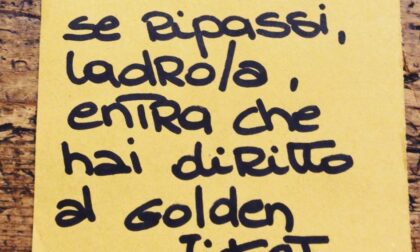 se Ripassi,
ladRo/a,
enTRa che
hai diRitto
al Golden